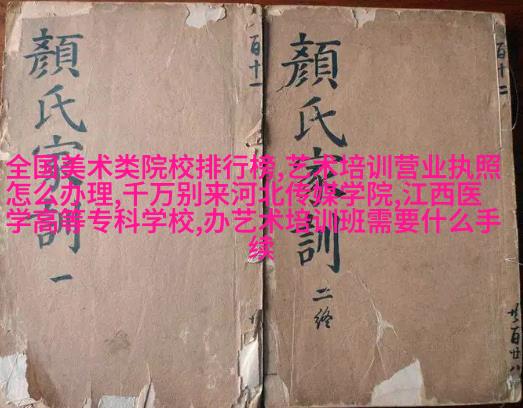 顏氏家訓
一
顏氏家訓
二終
百十一
百十二
全国美术类院校排行榜,艺术培训营业执照
怎么办理,千万别来河北传媒学院,江西医
学高等专科学校,办艺术培训班需要什么手
续